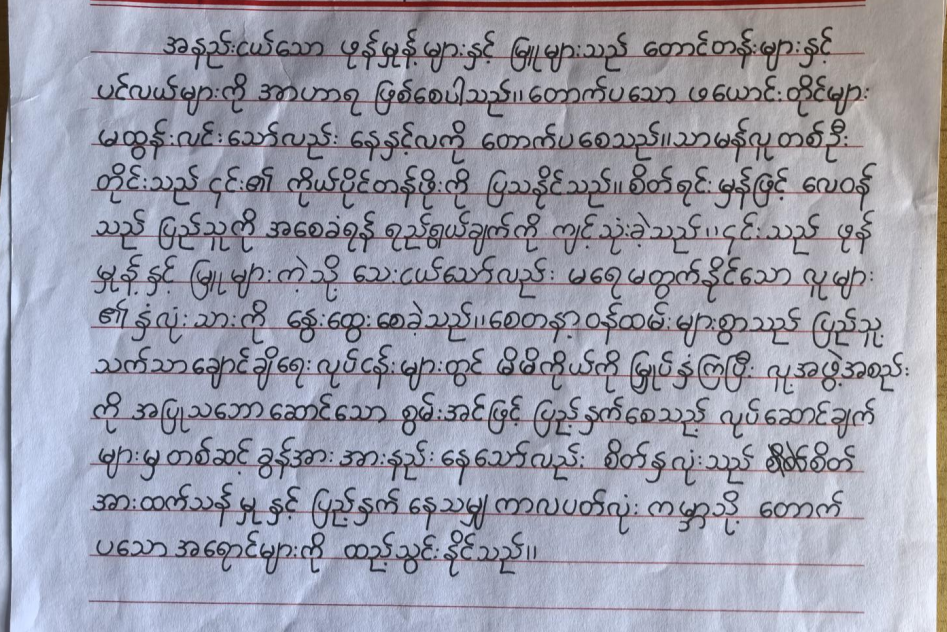 အနည်းငယ်သော ဖုန်မှုန့်များနှင့် မြူများသည် တောင်တန်းများနှင့်
ပင်လယ်များကို အာဟာရ ဖြစ်စေပါသည်။တောက်ပသော ဖယောင်းတိုင်များ
မထွန်းလင်းသော်လည်း နေနှင့်လကို တောက်ပစေသည်။သာမန်လူတစ်ဦး
တိုင်းသည် ၎င်း၏ ကိုယ်ပိုင်တန်ဖိုးကို ပြသနိုင်သည်။စိတ်ရင်းမှန်ဖြင့် လေဝန်
သည် ပြည်သူကို အစေခံရန် ရည်ရွယ်ချက်ကို ကျင့်သုံးခဲ့သည်။၎င်းသည် ဖုန်
မှုန့်နှင့် မြူများကဲ့သို့ သေးငယ်သော်လည်း မရေမတွက်နိုင်သော လူများ
၏ နှလုံးသားကို နွေးထွေးစေခဲ့သည်။စေတနာ့ဝန်ထမ်းများစွာသည် ပြည်သူ့
သက်သာချောင်ချိရေးလုပ်ငန်းများတွင် မိမိကိုယ်ကို မြှုပ်နှံကြပြီး လူ့အဖွဲ့အစည်း
ကို အပြုသဘောဆောင်သော စွမ်းအင်ဖြင့် ပြည့်နှက်စေသည့် လုပ်ဆောင်ချက်
များမှတစ်ဆင့် ခွန်အား အားနည်းနေသော်လည်း စိတ်နှလုံးသည် စိတ်
အားထက်သန်မှုနှင့် ပြည့်နှက်နေသမျှ ကာလပတ်လုံး ကမ္ဘာသို့ တောက်
ပသောအရောင်များကို ထည့်သွင်းနိုင်သည်။